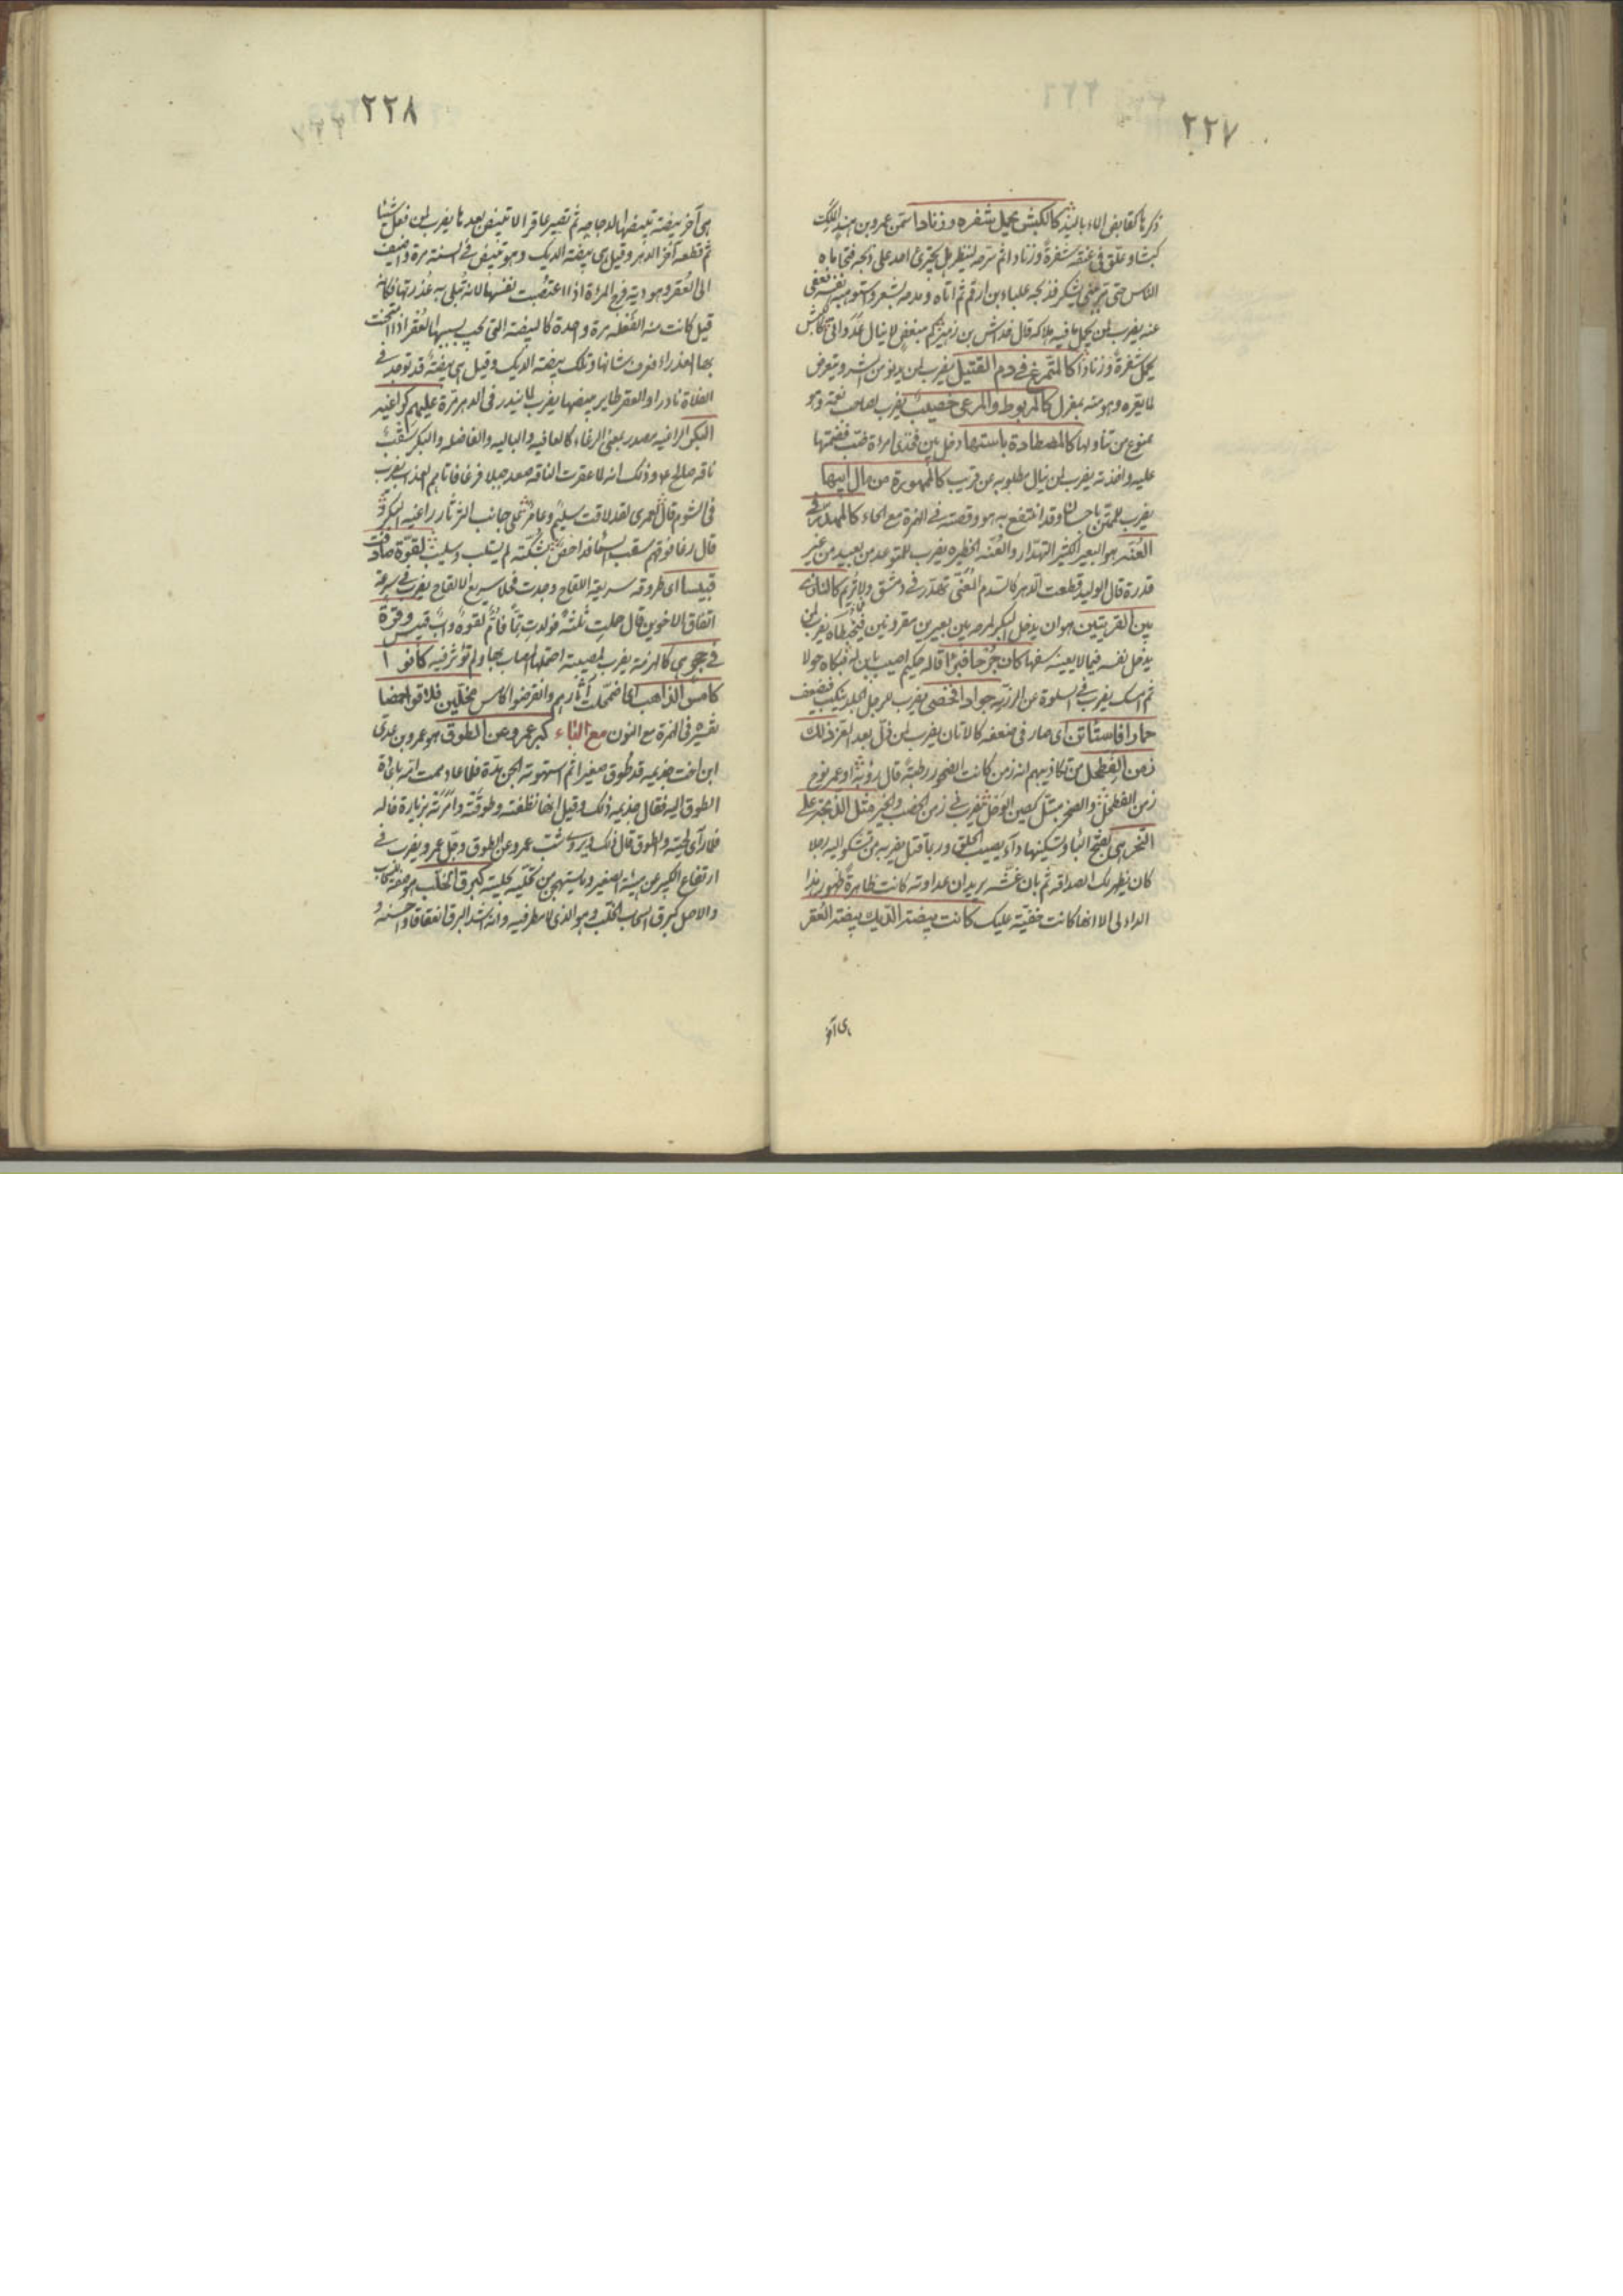 ٢٢٧
ذكرها كقابض الماء باليد كالكبش يحمل شفرة وزنادا استمن عمرو بن هند الملك
كبشا وعلق في عنقه شفرة وزنادا ثم سرحه لينظر هل يجترئ احد على ذبحه فتحاماه
الناس حتى مر ببني يشكر فذبحه علباء بن ارقم ثم اتاه ومدحه بشعر واستوهبه نفسه فعفى
عنه يضرب لمن يحمل ما فيه هلاكه قال خداش بن زهير كم مبغض لا ينال عدوانى ككبش
يحمل شفرة وزنادا كالمتمرغ في دم القتيل يضرب لمن يدنو من الشر ويتعرض
لما يضره وهو منه بمعزل كالمربوط والمرعى خصيب يضرب لصاحب نعمة وهو
ممنوع من تناولها كالمصطادة باستها دخل بين فخذى امرأة ضب فضمتها
عليه واخذته يضرب لمن ينال مطلوبه عن قريب كالممهورة من مال ابيها
يضرب للممتن باحسان وقد انتفع به هو وقصته في الهمزة مع الحاء كالمهدر في
العنة هو البعير الكثير التهدار والعنة الحظيرة يضرب للمتوعد من بعيد من غير
قدرة قال الوليد قطعت الدهر كالسدم المعنى تهدر في دمشق ولا تريم كالنازى
بين القرينين هو ان يدخل البكر المرح بين بعيرين مقرونين فيخبطاه يضرب لمن
يدخل نفسه فيما لا يعنيه سفها كان جرحا فبرأ قاله حكيم اصيب بابن له فبكاه حولا
ثم امسك يضرب في السلوة عن الرزية جوادا فخصى يضرب للرجل الجلد ينكب فيضعف
حمارا فاستاتن اى صار في ضعفه كالاتان يضرب لمن ذل بعد العز ذلك
زمن الفطحل من تكاذيبهم انه زمن كانت الصخور رطبة قال رؤبة او عمر نوح
زمن الفطحل والصخر مبتل كطين الوحل يضرب في زمن الخصب والخير مثل الذبحة على
النحر هى بفتح الباء وتسكينها داء يصيب الحلق وربما قتل يضربه من تشكو اليه رجلا
كان يظهر لك الصداقة ثم بان غشه يريد ان عداوته كانت ظاهرة ظهور هذا
الداء لى الا انها كانت خفية عليك كانت بيضة الديك بيضة العقر
هى آخر
٢٢٨
هى آخر بيضة تبيضها الدجاجة ثم تصير عاقرا لا تبيض بعدها يضرب لمن فعل شيئا
ثم قطعه آخر الدهر وقيل هى بيضة الديك وهو تبيض في السنة مرة واضيف
الى العقر وهو دية فرج المرأة اذا اغتصبت نفسها لانه تبلى به عذرتها فكانه
قيل كانت منه الفعلة مرة واحدة كالبيضة التى يجب بسببها العقر اذا امتحنت
بها العذراء فعرف شانها وتلك بيضة الديك وقيل هى بيضة قد توجد في
الفلاة نادرا والعقر طاير مبيضها يضرب لما يندر فى الدهر مرة عليهم كراغية
البكر الراغية مصدر بمعنى الرغاء كالعافية والبالية والفاضلة والبكر سقب
ناقة صالح وذلك انه لما عقرت الناقة صعد جبلا فرغا فاتاهم العذاب يضرب
فى الشوم قال لعمرى لقد لاقت سليم وعامر على جانب الثرثار راغية البكر و
قال رغا فوقهم سقب السماء فداحض بشكته لم يستلب وسليب لقوة صادفت
قبيسا اى طروقة سريعة اللقاح وجدت فحلا سريع الالقاح يضرب في سرعة
اتفاق الاخوين قال حملت ثلثة فولدت تما فام لقوة واب قبيس وقرة
في حجر هى كالهزمة يضرب لمصيبة احتملها المصاب بها ولم تؤثر فيه كانوا
كامس الذاهب اى اضمحلت آثارهم وانقرضوا كاس مخلين فلاقوا حمضا
تفسيره فى الهمزة مع النون مع الباء كبر عمرو عن الطوق هو عمرو بن عدى
ابن اخت جذيمة قد طوق صغيرا ثم استهوته الجن مدة فلما عاد همت امه باعادة
الطوق اليه فقال جذيمة ذلك وقيل انها نظفته وطوقته وامرته بزيارة خاله
فلما رأى لحيته والطوق قال ذلك ويروى شب عمرو عن الطوق وجل عمرو يضرب في
ارتفاع الكبير عن هيئة الصغير وما يستهجن من تحليه بحليته كبرق الخلب هو صفة للسحاب
والاصل كبرق السحاب الخلب وهو الذى لا مطر فيه وانه اشد البرق انعقاقا واحسنه و